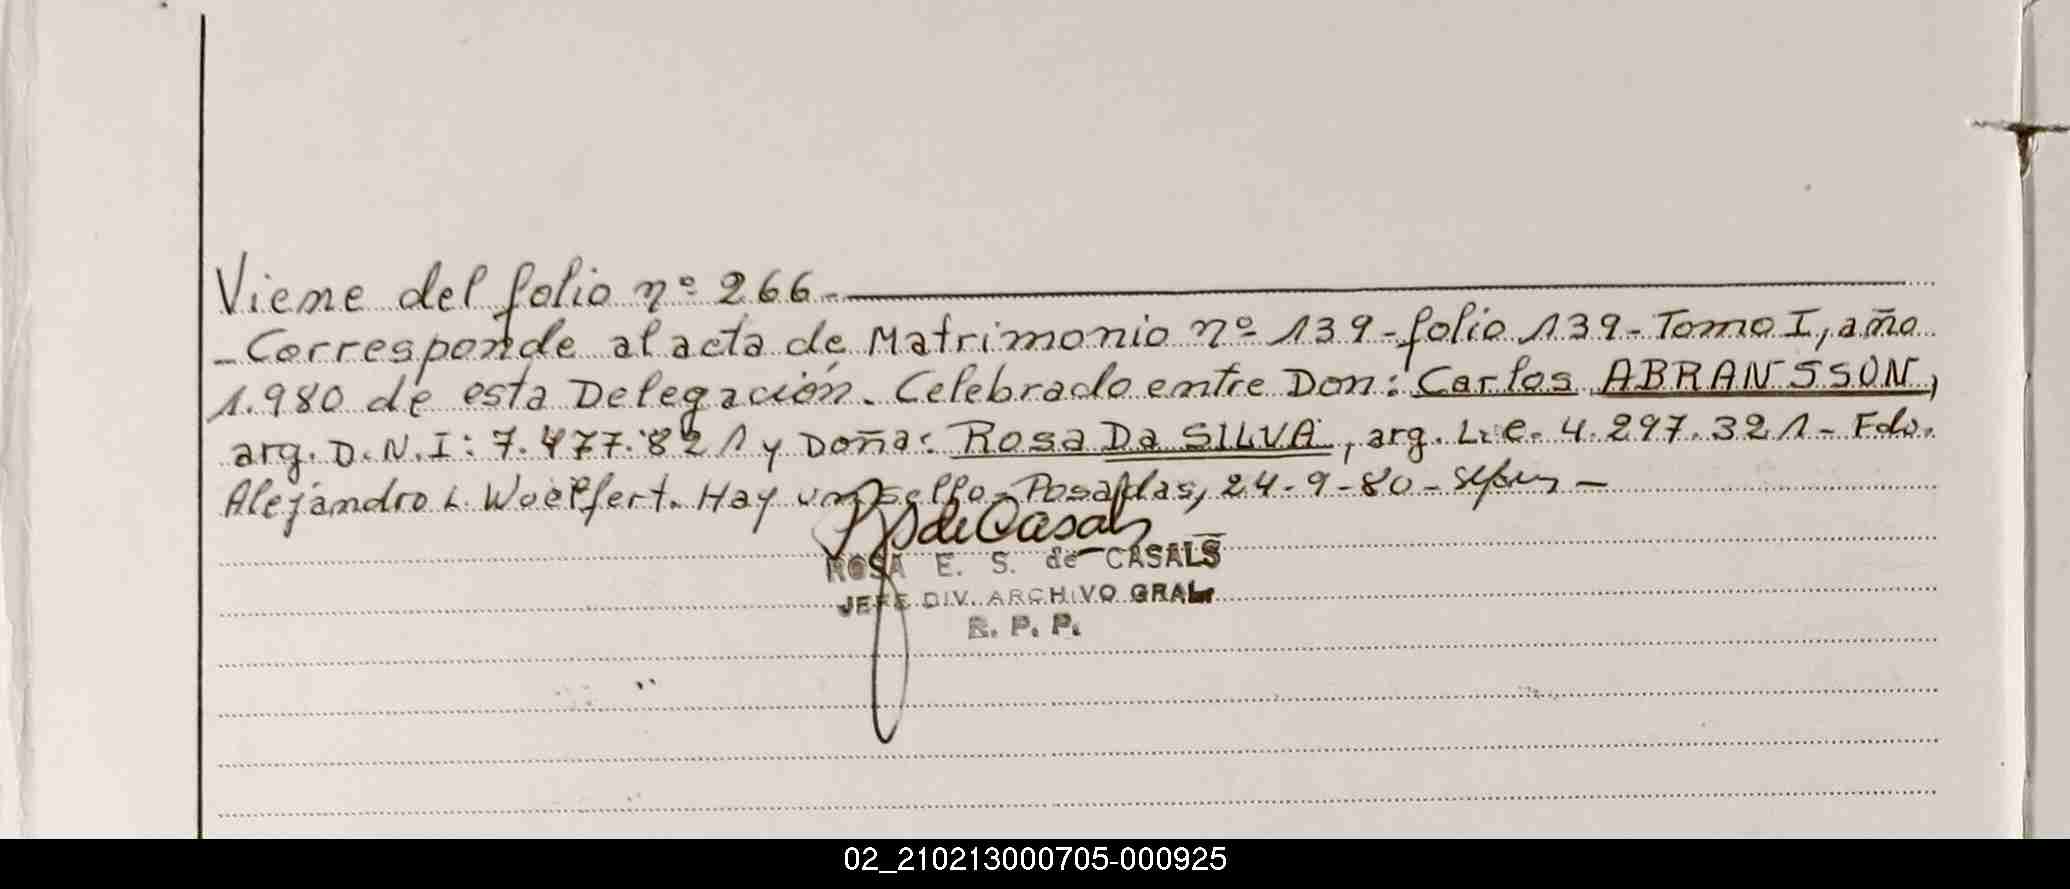 Viene del folio nº 266.-
-Corresponde al acta de Matrimonio nº 139-folio 139-Tomo I, año
1.980 de esta Delegación. Celebrado entre Don: Carlos ABRANSSON,
arg. D.N.I: 7.477.821 y Doña: Rosa Da SILVA, arg. L.C. 4.297.321- Fdo.
Alejandro L. Woelfert. Hay un sello- Posadas, 24-9-80-
de Casals
ROSA E. S. de CASALS
JEFE DIV. ARCHIVO GRAL.
R. P. P.
02_210213000705-000925